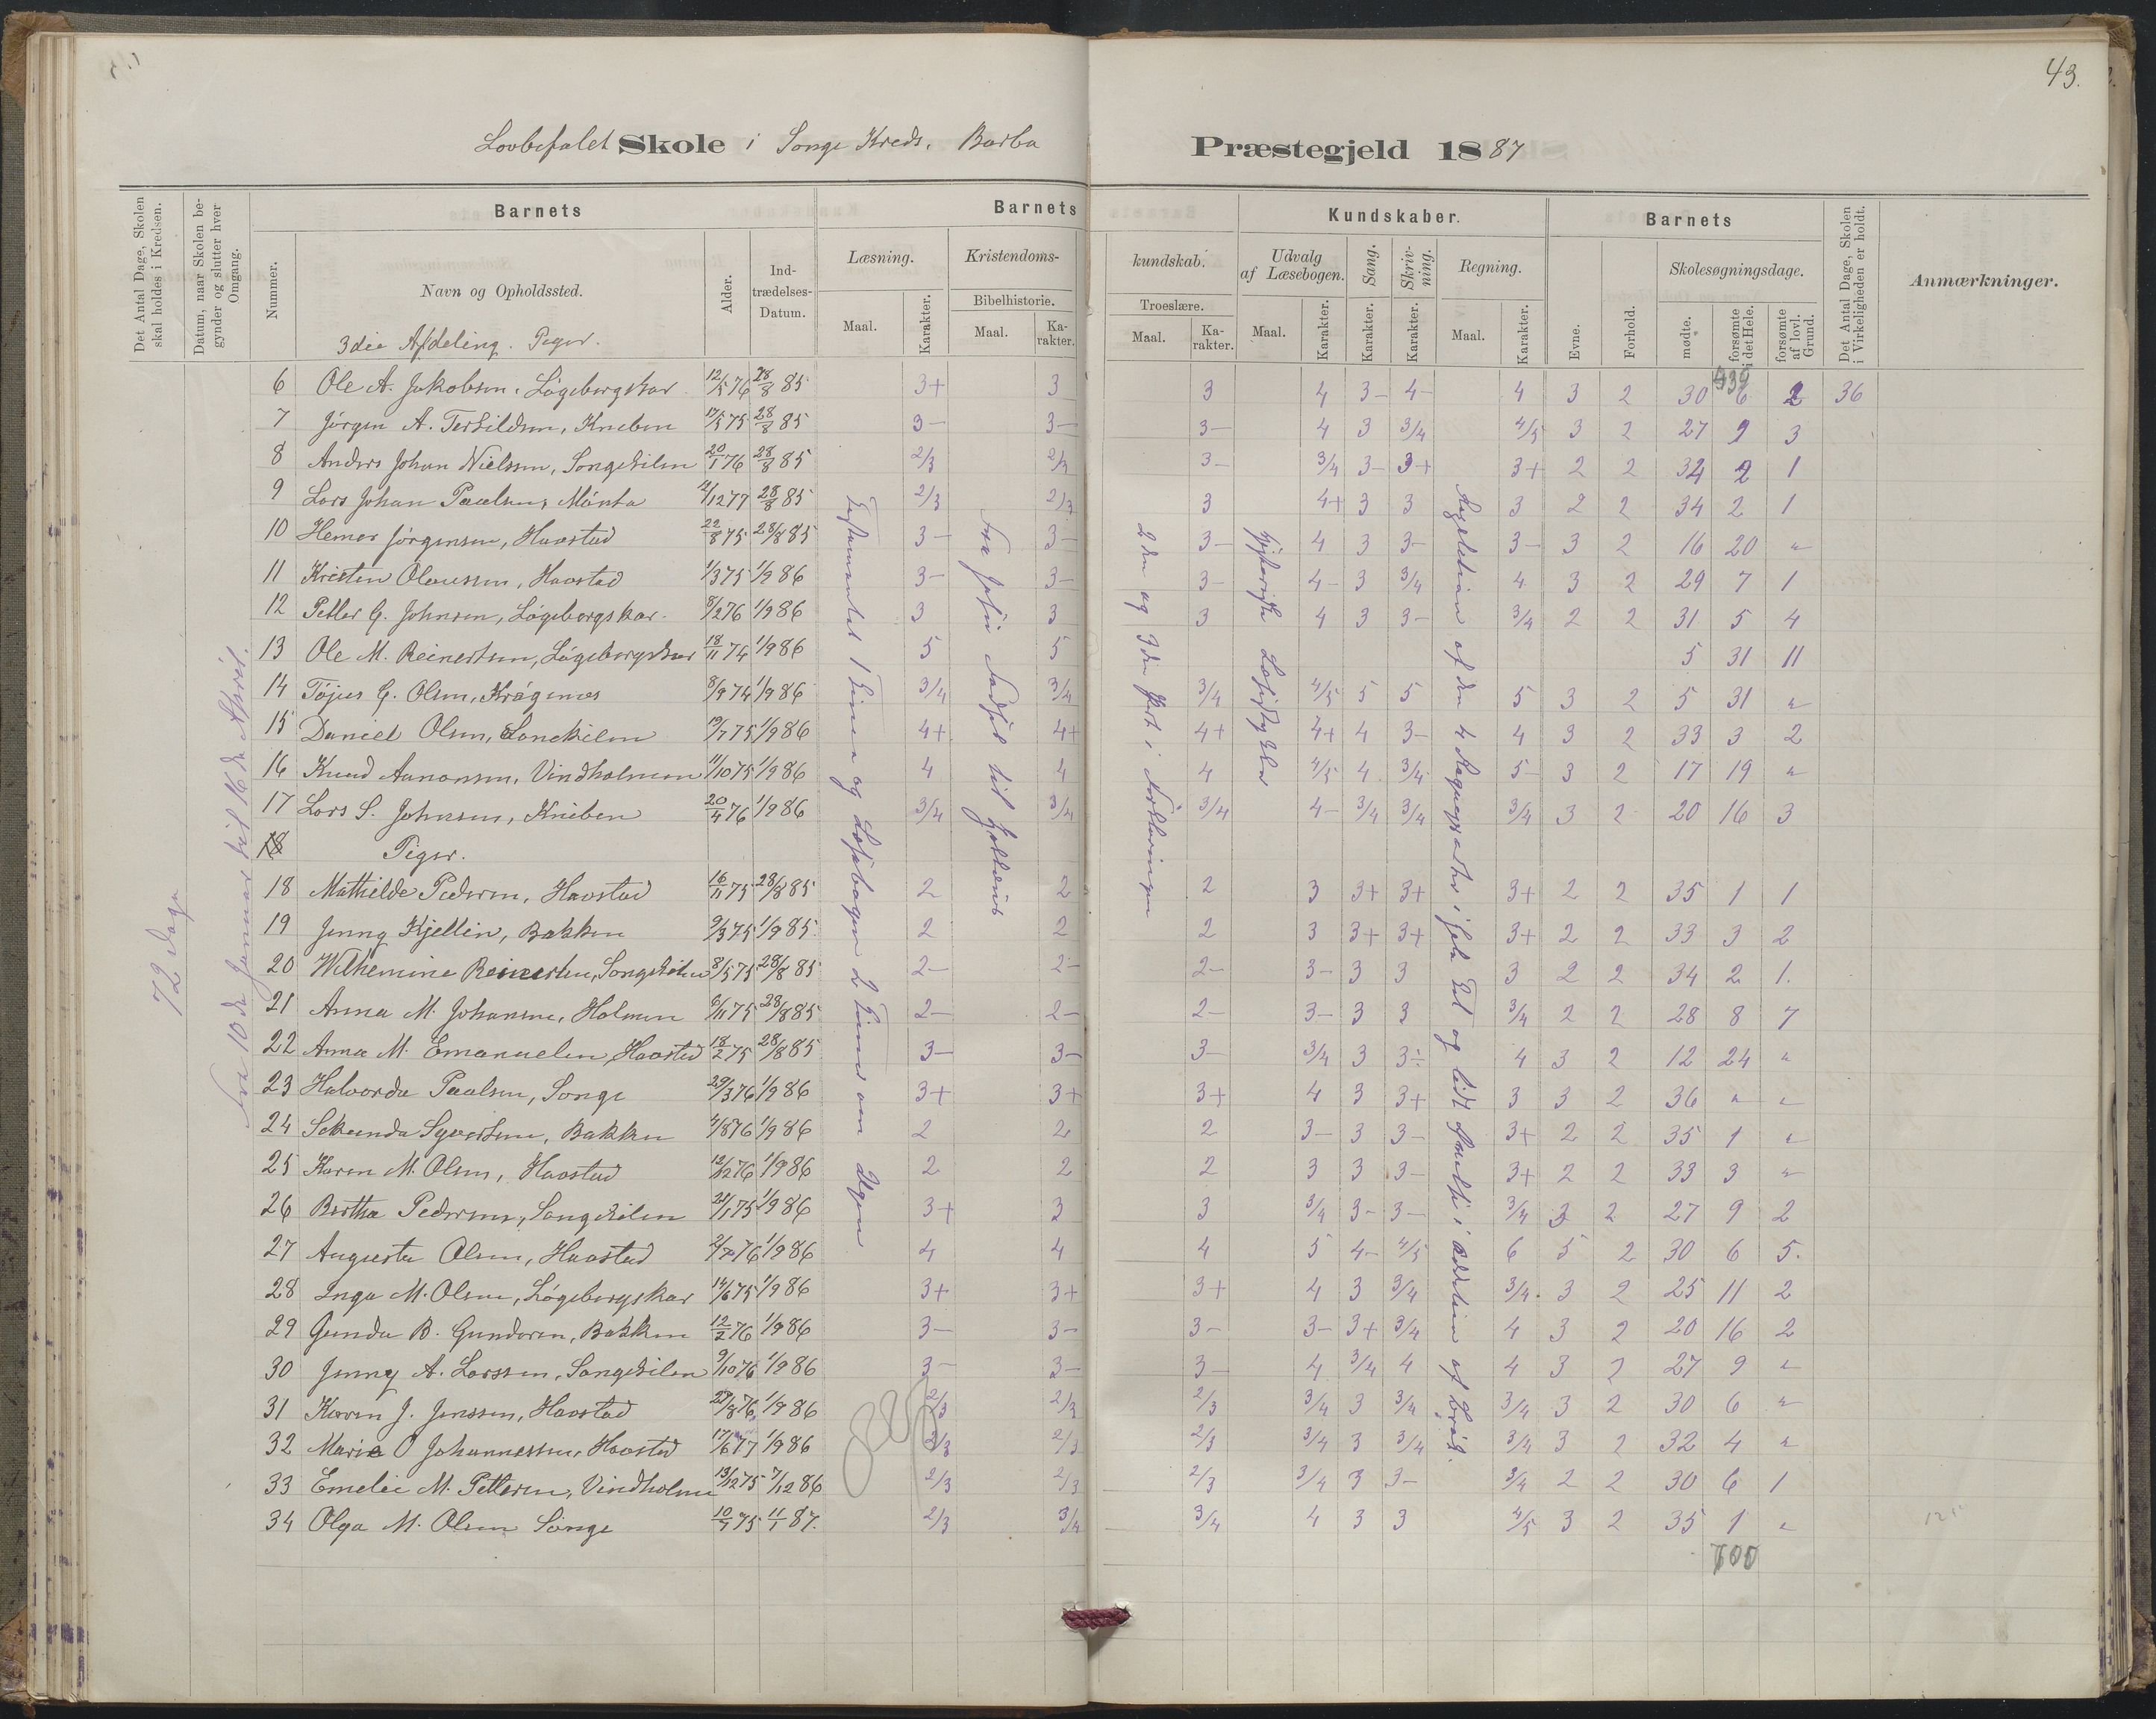 43.
Lovbefalet Skole i Songe Kreds, Barbo Præstegjeld 1887
Det Antal Dage, Skolen skal holdes i Kredsen.
Datum, naar Skolen begynder og slutter hver Omgang.
Barnets
Barnets kundskab.
Kundskaber.
Barnets
Det Antal Dage, Skolen i Virkeligheden er holdt.
Anmærkninger.
Nummer.
Navn og Opholdssted.
Alder.
Indtrædelses-Datum.
Læsning.
Kristendoms-
Udvalg af Læsebogen.
Sang.
Skrivning.
Regning.
Evne.
Forhold.
Skolesøgningsdage.
Bibelhistorie.
Troeslære.
Maal. Karakter. Maal. Karakter. Maal. Karakter. Maal. Karakter. Karakter. Karakter. Maal. Karakter.
mødte. forsømte i det Hele. forsømte af lovl. Grund.
3die Afdeling. Piger.
72 Dage
Fra 10de Januar til 16de April.
6 Ole A. Jakobsen, Lögebergskar 12/5 76 28/8 85 3+ 3 3 4 3- 4- 4 3 2 30 6 2 36
7 Jørgen A. Terkildsen, Kneben 17/5 75 28/8 85 3- 3- 3- 4 3 3/4 4/5 3 2 27 9 3
8 Anders Johan Nielsen, Songekilen 20/1 76 28/8 85 2/3 2/3 3- 3/4 3- 3+ 3+ 2 2 34 2 1
9 Lars Johan Paulsen, Mánta 12/12 77 28/8 85 2/3 2/3 3 4+ 3 3 3 2 2 34 2 1
10 Hemer Jørgensen, Havstad 22/8 75 28/8 85 3- 3- 3- 4 3 3- 3- 3 2 16 20 "
11 Kristen Olaussen, Havstad 1/3 75 1/9 86 3- 3- 3- 4- 3 3/4 4 3 2 29 7 1
12 Petter G. Johnsen, Lögebergskar 8/2 76 1/9 86 3 3 3 4 3 3- 3/4 2 2 31 5 4
13 Ole M. Reinertsen, Lögebergskar 18/11 74 1/9 86 5 5 5 31 11
14 Töjus G. Olsen, Krögenes 8/9 74 1/9 86 3/4 3/4 3/4 4/5 5 5 5 3 2 5 31 "
15 Daniel Olsen, Songekilen 19/7 75 1/9 86 4+ 4+ 4+ 4+ 4 3- 4 3 2 33 3 2
16 Knud Aanonsen, Vindholmen 11/10 75 1/9 86 4 4 4 4/5 4 3/4 5- 3 2 17 19 "
17 Lars S. Johnsen, Kneben 20/4 76 1/9 86 3/4 3/4 3/4 4- 3/4 3/4 3/4 3 2 20 16 3
18 Piger.
18 Mathilde Pedersen, Havstad 16/11 75 28/8 85 2 2 2 3 3+ 3+ 3+ 2 2 35 1 1
19 Jenny Kjellin, Bakken 9/3 75 1/9 85 2 2 2 3 3+ 3+ 3+ 2 2 33 3 2
20 Wilhemine Reinertsen, Songekilen 8/5 75 28/8 85 2- 2- 2- 3- 3 3 3 2 2 34 2 1.
21 Anna M. Johansen, Holmen 6/11 75 28/8 85 2- 2- 2- 3- 3 3 3/4 2 2 28 8 7
22 Anna M. Emanuelsen, Havstad 18/2 75 28/8 85 3- 3- 3- 3/4 3 3÷ 4 3 2 12 24 "
23 Halvorda Paulsen, Songe 29/3 76 1/9 86 3+ 3+ 3+ 4 3 3+ 3 3 2 36 " "
24 Sekunda Syvertsen, Bakken 4/8 76 1/9 86 2 2 2 3- 3 3- 3+ 2 2 35 1 "
25 Karen M. Olsen, Havstad 12/12 76 1/9 86 2 2 2 3 3 3- 3+ 2 2 33 3 "
26 Bertha Pedersen, Songekilen 21/1 75 1/9 86 3+ 3 3 3/4 3- 3- 3/4 3 2 27 9 2
27 Augusta Olsen, Havstad 2/7 76 1/9 86 4 4 4 5 4- 4/5 6 5 2 30 6 5.
28 Inga M. Olsen, Lögebergskar 14/6 75 1/9 86 3+ 3+ 3+ 4 3 3/4 3/4 3 2 25 11 2
29 Gunda B. Gundersen, Bakken 12/2 76 1/9 86 3- 3- 3- 3- 3+ 3/4 4 3 2 20 16 2
30 Jenny A. Larssen, Songekilen 9/10 76 1/9 86 3- 3- 3- 4 3/4 4 4 3 2 27 9 "
31 Karen J. Jenssen, Havstad 27/8 76 1/9 86 2/3 2/3 2/3 3/4 3 3/4 3/4 3 2 30 6 "
32 Marie O Johannessen, Havstad 17/6 77 1/9 86 2/3 2/3 2/3 3/4 3 3/4 3/4 3 2 32 4 "
33 Emelie M. Pettersen, Vindholmen 13/12 75 7/12 86 2/3 2/3 2/3 3/4 3 3- 3/4 2 2 30 6 1
34 Olga M. Olsen Songe 10/7 75 11/1 87. 2/3 3/4 3/4 4 3 3 4/5 3 2 35 1 "
Testamentet 1 Time og Læsebogen 2 Timer om Ugen
2den og 3den Part i Forklaringen